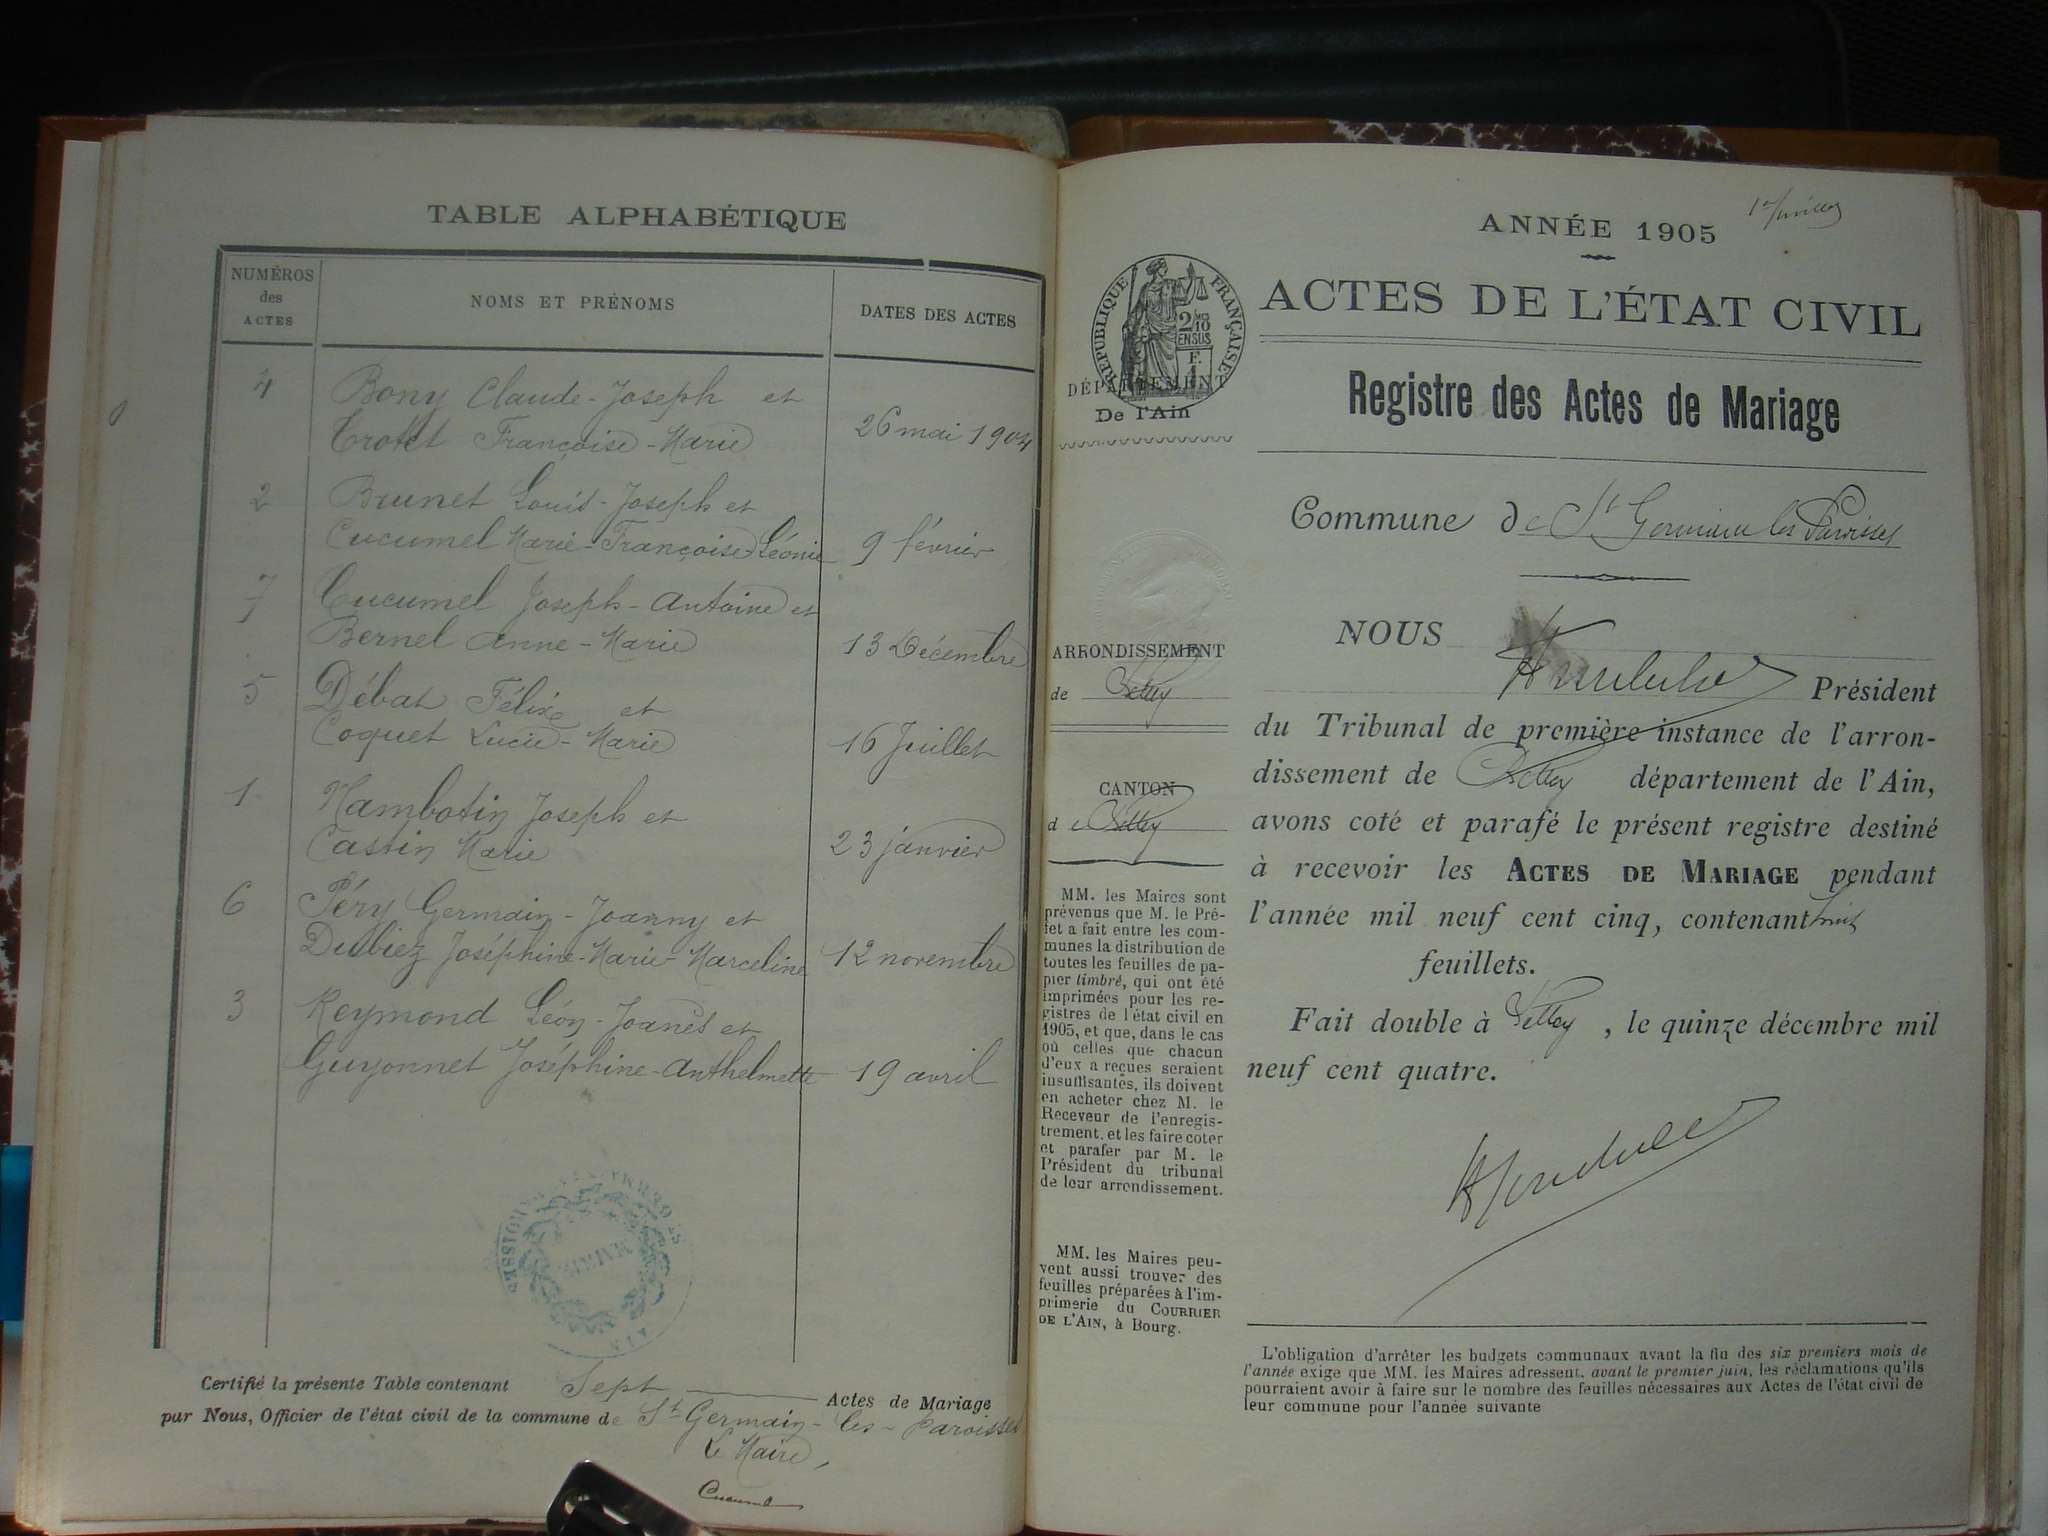 TABLE ALPHABÉTIQUE
NUMÉROS
des
ACTES
NOMS ET PRÉNOMS
DATES DES ACTES
4 Bony Claude-Joseph et
Trotet Françoise-Marie 26 mai 1904
2 Brunet Louis-Joseph et
Cucumel Marie-Françoise Léonie 9 février
7 Cucumel Joseph-Antoine et
Bernel Anne-Marie 13 Décembre
5 Débat Félix et
Coquet Lucie-Marie 16 Juillet
1 Mambotin Joseph et
Castin Marie 23 janvier
6 Péry Germain-Joanny et
Dubiez Joséphine-Marie-Marceline 12 novembre
3 Reymond Léon-Joanès et
Guyonnet Joséphine-Anthelmette 19 avril
MAIRIE
AIN
Certifié la présente Table contenant Sept Actes de Mariage
par Nous, Officier de l'état civil de la commune de St Germain-les-Paroisses
Le Maire,
Cucumel
ANNÉE 1905
ACTES DE L'ÉTAT CIVIL
Registre des Actes de Mariage
RÉPUBLIQUE FRANÇAISE
2/10
EN SUS
F.
1
DÉPARTEMENT
De l'Ain
Commune de St Germain les Paroisses
ARRONDISSEMENT
de Belley
CANTON
de Belley
MM. les Maires sont
prévenus que M. le Pré-
fet a fait entre les com-
munes la distribution de
toutes les feuilles de pa-
pier timbré, qui ont été
imprimées pour les re-
gistres de l'état civil en
1905, et que, dans le cas
où celles que chacun
d'eux a reçues seraient
insuffisantes, ils doivent
en acheter chez M. le
Receveur de l'enregis-
trement, et les faire coter
et parafer par M. le
Président du tribunal
de leur arrondissement.
MM. les Maires peu-
vent aussi trouver des
feuilles préparées à l'im-
primerie du COURRIER
DE L'AIN, à Bourg.
NOUS
Président
du Tribunal de première instance de l'arron-
dissement de Belley département de l'Ain,
avons coté et parafé le présent registre destiné
à recevoir les ACTES DE MARIAGE pendant
l'année mil neuf cent cinq, contenant huit
feuillets.
Fait double à Belley, le quinze décembre mil
neuf cent quatre.
L'obligation d'arrêter les budgets communaux avant la fin des six premiers mois de
l'année exige que MM. les Maires adressent, avant le premier juin, les réclamations qu'ils
pourraient avoir à faire sur le nombre des feuilles nécessaires aux Actes de l'état civil de
leur commune pour l'année suivante